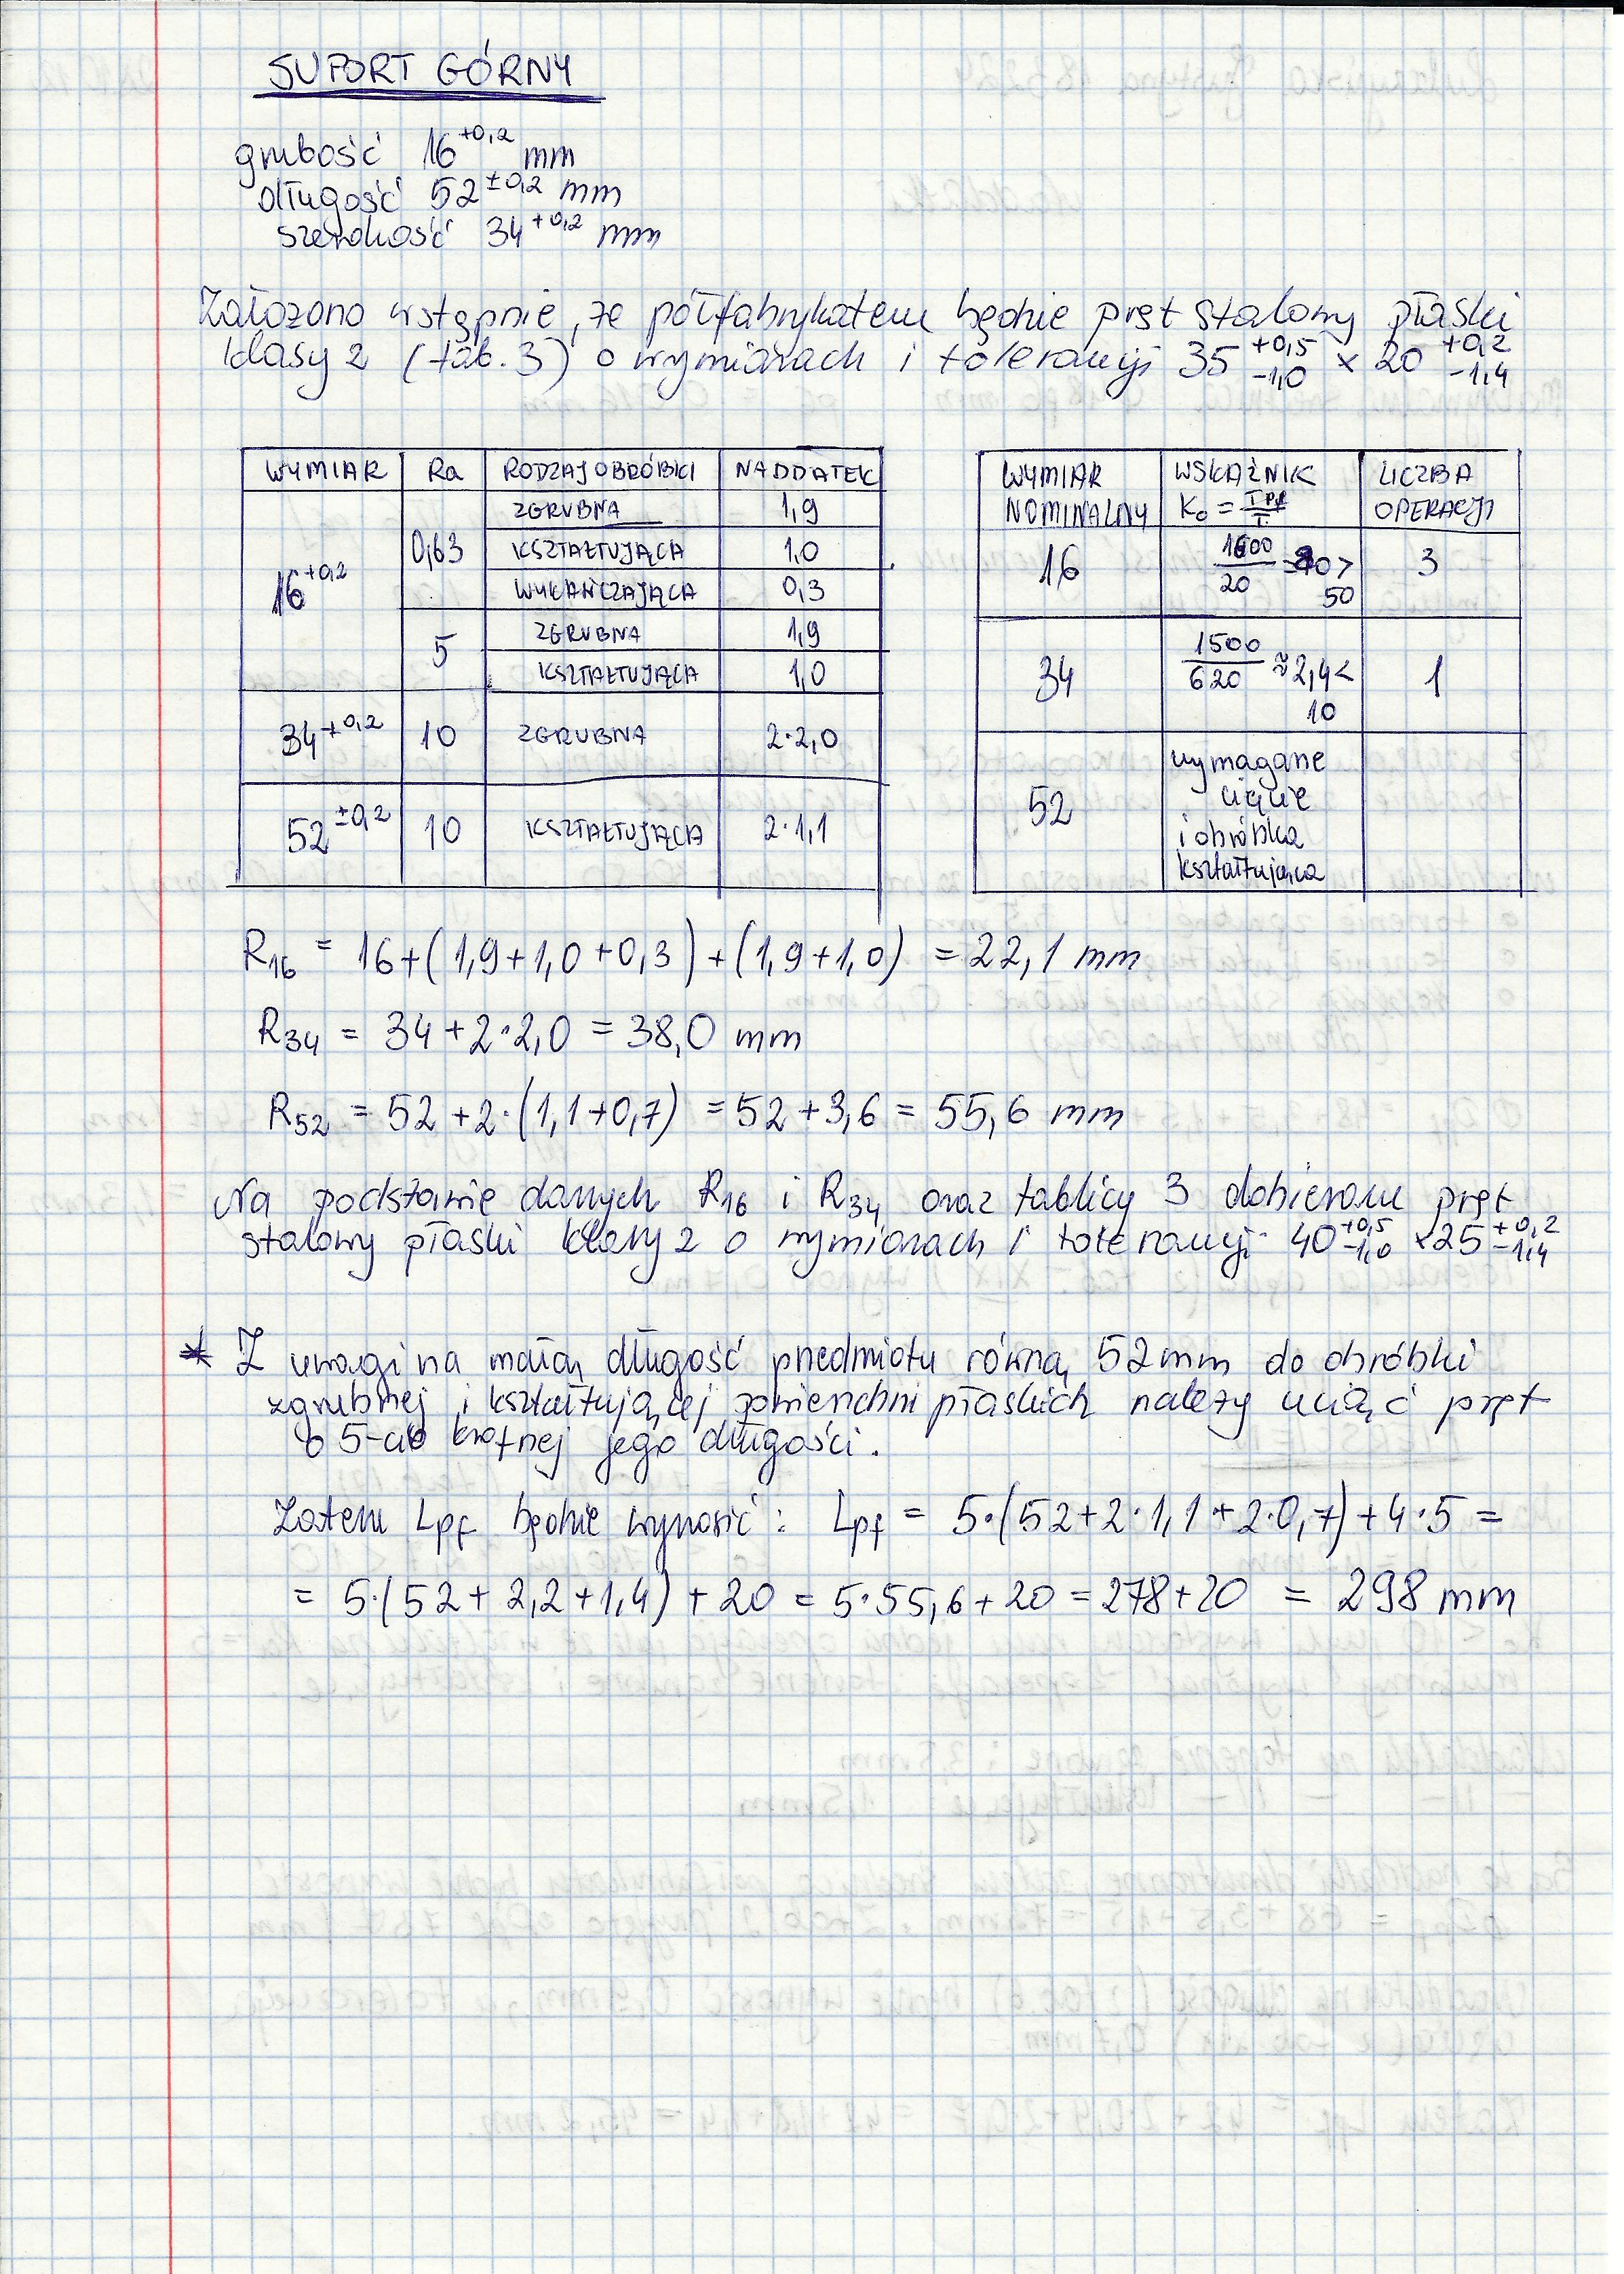 SUPORT GÓRNY
grubość 16 +0,2 mm
długość 52 ±0,2 mm
szerokość 34 +0,2 mm
Założono wstępnie, że półfabrykatem będzie pręt stalowy płaski
klasy 2 (tab. 3) o wymiarach i tolerancji 35 +0,5 -1,0 x 20 +0,2 -1,4
WYMIAR Ra RODZAJ OBRÓBKI NADDATEK
16 +0,2 0,63 ZGRUBNA 1,9
KSZTAŁTUJĄCA 1,0
WYKAŃCZAJĄCA 0,3
5 ZGRUBNA 1,9
KSZTAŁTUJĄCA 1,0
34 +0,2 10 ZGRUBNA 2·2,0
52 ±0,2 10 KSZTAŁTUJĄCA 2·1,1
WYMIAR NOMINALNY WSKAŹNIK Ko = Tpf/T LICZBA OPERACJI
16 1600/20 = 80 > 50 3
34 1500/620 ≈ 2,4 < 10 1
52 wymagane
cięcie
i obróbka
kształtująca
R16 = 16+(1,9+1,0+0,3)+(1,9+1,0) = 22,1 mm
R34 = 34+2·2,0 = 38,0 mm
R52 = 52+2·(1,1+0,7) = 52+3,6 = 55,6 mm
Na podstawie danych R16 i R34 oraz tablicy 3 dobieram pręt
stalowy płaski klasy 2 o wymiarach i tolerancji 40 +0,5 -1,0 x 25 +0,2 -1,4
* Z uwagi na małą długość przedmiotu równą 52mm do obróbki
zgrubnej i kształtującej powierzchni płaskich należy uciąć pręt
o 5-cio krotnej jego długości.
Zatem Lpf będzie wynosić: Lpf = 5·(52+2·1,1+2·0,7)+4·5 =
= 5·(52+2,2+1,4)+20 = 5·55,6+20 = 278+20 = 298 mm